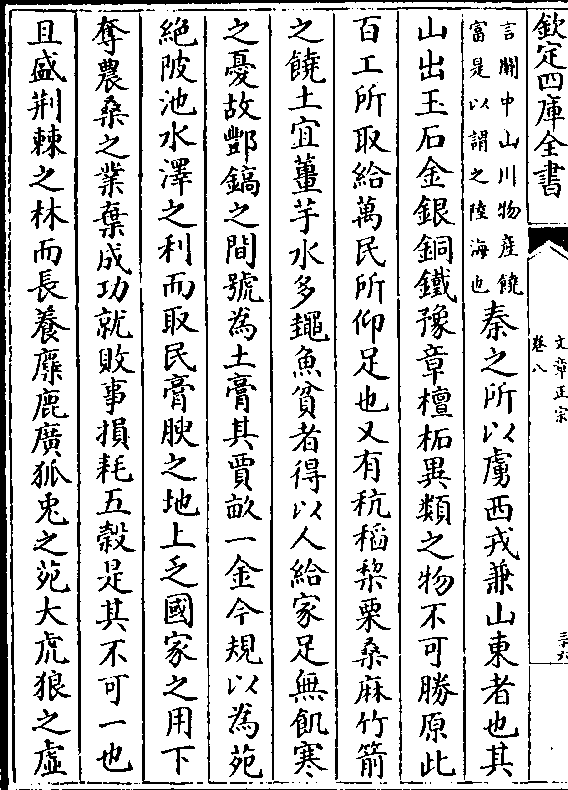 欽定四庫全書
文章正宗
卷八
言關中山川物產饒
富是以謂之陸海也
秦之所以虜西戎兼山東者也其
山出玉石金銀銅鐵豫章檀柘異類之物不可勝原此
百工所取給萬民所仰足也又有秔稻棃栗桑麻竹箭
之饒土宜薑芋水多鼃魚貧者得以人給家足無飢寒
之憂故酆鎬之間號為土膏其賈畝一金今規以為苑
絶陂池水澤之利而取民膏腴之地上乏國家之用下
奪農桑之業棄成功就敗事損耗五榖是其不可一也
且盛荆棘之林而長養麋鹿廣狐兎之苑大虎狼之虛